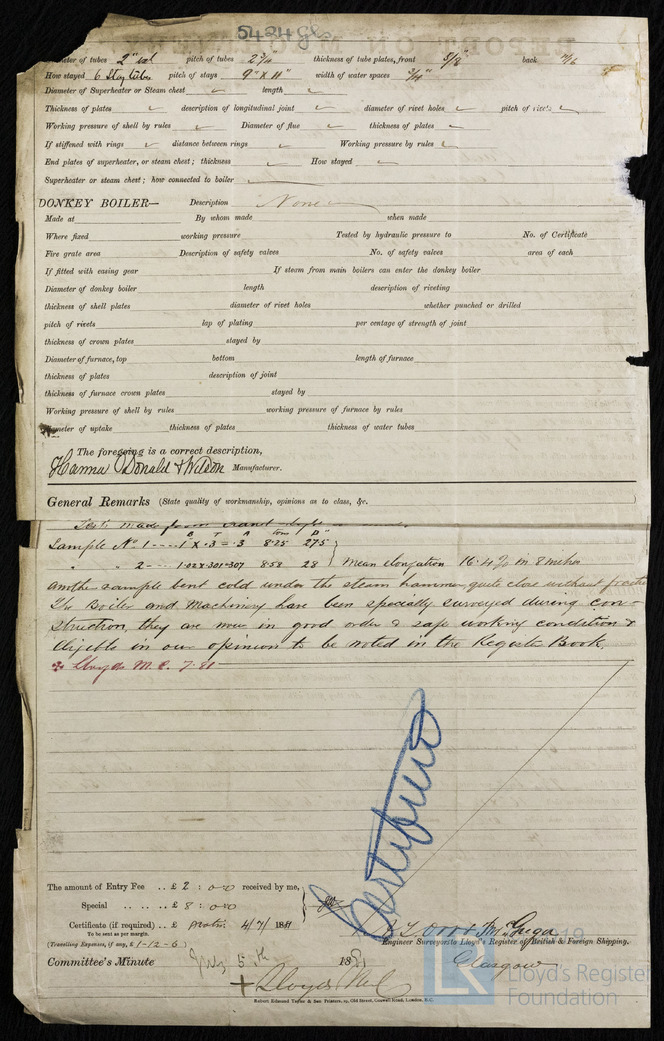 5424 gls
meter of tubes 2" ext pitch of tubes 2 3/4" thickness of tube plates, front 5/8" back
How stayed 6 Stay tubes pitch of stays 9" x 11" width of water spaces 3/4"
Diameter of Superheater or Steam chest length
Thickness of plates description of longitudinal joint diameter of rivet holes pitch of rivets
Working pressure of shell by rules Diameter of flue thickness of plates
If stiffened with rings distance between rings Working pressure by rules
End plates of superheater, or steam chest; thickness How stayed
Superheater or steam chest; how connected to boiler
DONKEY BOILER— Description None
Made at By whom made when made
Where fixed working pressure Tested by hydraulic pressure to No. of Certificate
Fire grate area Description of safety valves No. of safety valves area of each
If fitted with easing gear If steam from main boilers can enter the donkey boiler
Diameter of donkey boiler length description of riveting
thickness of shell plates diameter of rivet holes whether punched or drilled
pitch of rivets lap of plating per centage of strength of joint
thickness of crown plates stayed by
Diameter of furnace, top bottom length of furnace
thickness of plates description of joint
thickness of furnace crown plates stayed by
Working pressure of shell by rules working pressure of furnace by rules
meter of uptake thickness of plates thickness of water tubes
The foregoing is a correct description,
Hanna Donald & Wilson Manufacturer.
General Remarks (State quality of workmanship, opinions as to class, &c.
Tests made from
B T A Tons
Sample No 1 ---- 1 x .3 = .3 8.25 27.5
" " 2 --- 1.02 x .301 = .307 8.58 28 } Mean elongation 16.4% in 8 inches
another sample bent cold under the steam hammer quite close without
The Boiler and Machinery have been specially surveyed during con-
struction, they are now in good order & safe working condition &
eligible in our opinion to be noted in the Register Book.
✠ Lloyds M.C. 7.81
Certificate
The amount of Entry Fee .. £ 2 : 0-0 received by me,
Special .. .. .. £ 8 : 0-0
Certificate (if required) .. £ 4/7/ 1881
To be sent as per margin.
(Travelling Expenses, if any, £ 1-12-6)
Engineer Surveyors to Lloyd's Register of British & Foreign Shipping.
Committee's Minute July 5th 1881 Glasgow
+ Lloyds M.C.
Robert Edmund Taylor & Son Printers, 19, Old Street, Goswell Road, London, E.C.
LR
Lloyd's Register
Foundation